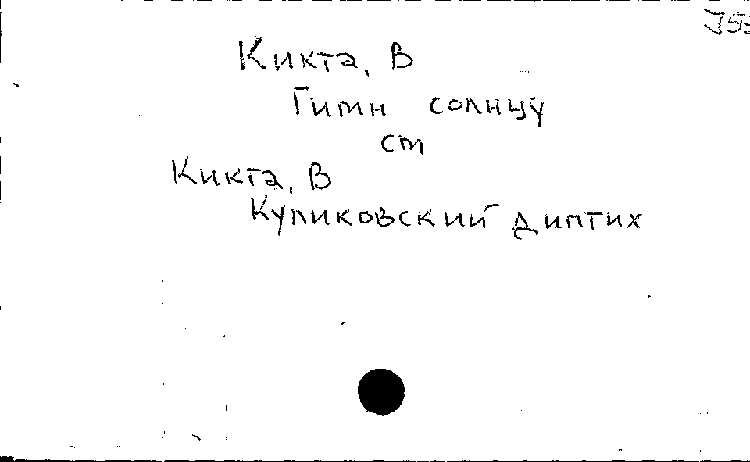 Кикта, В
Гимн солнцу
см
Кикта, В
Куликовский диптих